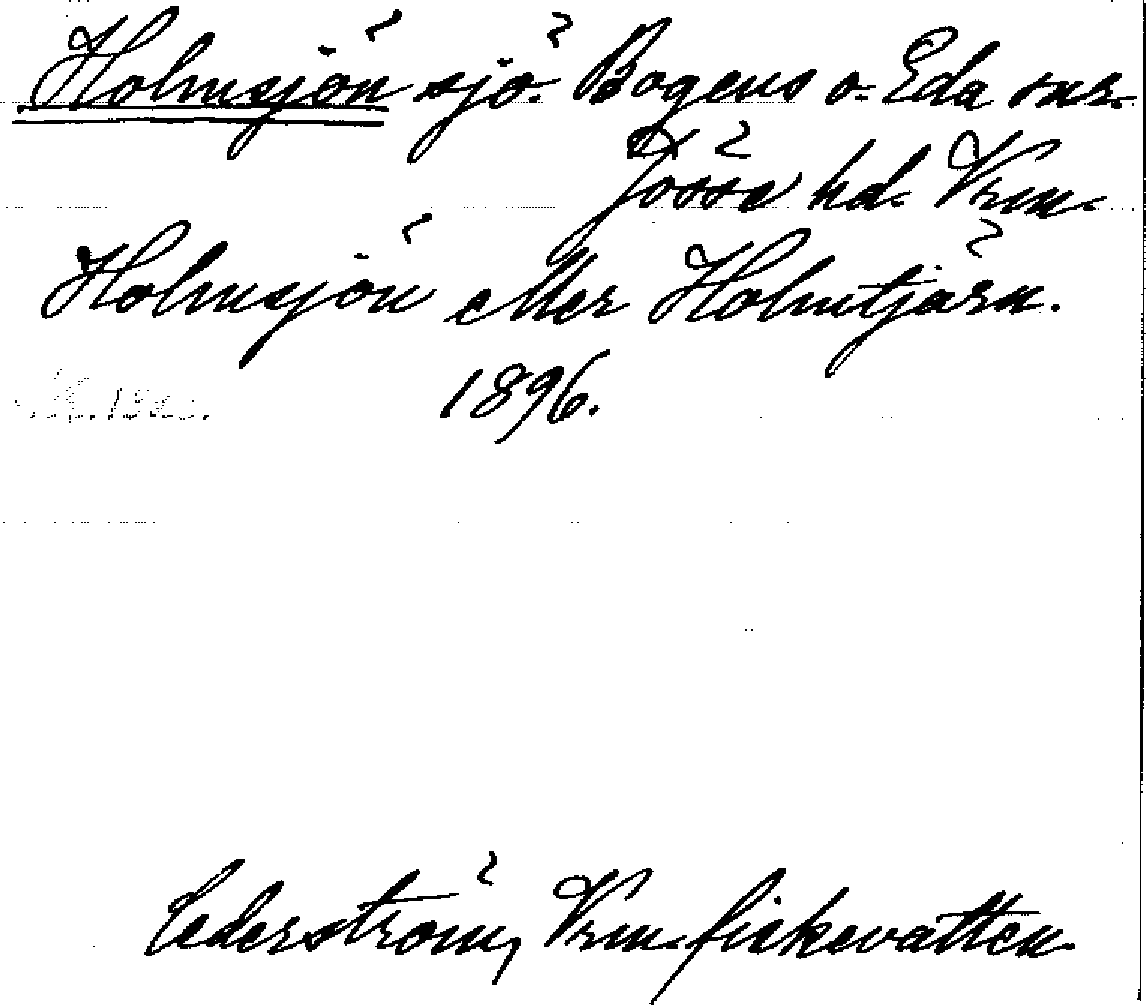 Holmsjön sjö. Bogens o. Eda snr.
Jösse hd. Vrm.
Holmsjön eller Holmtjärn.
1896.
Cederström, Vrm. fiskevatten.